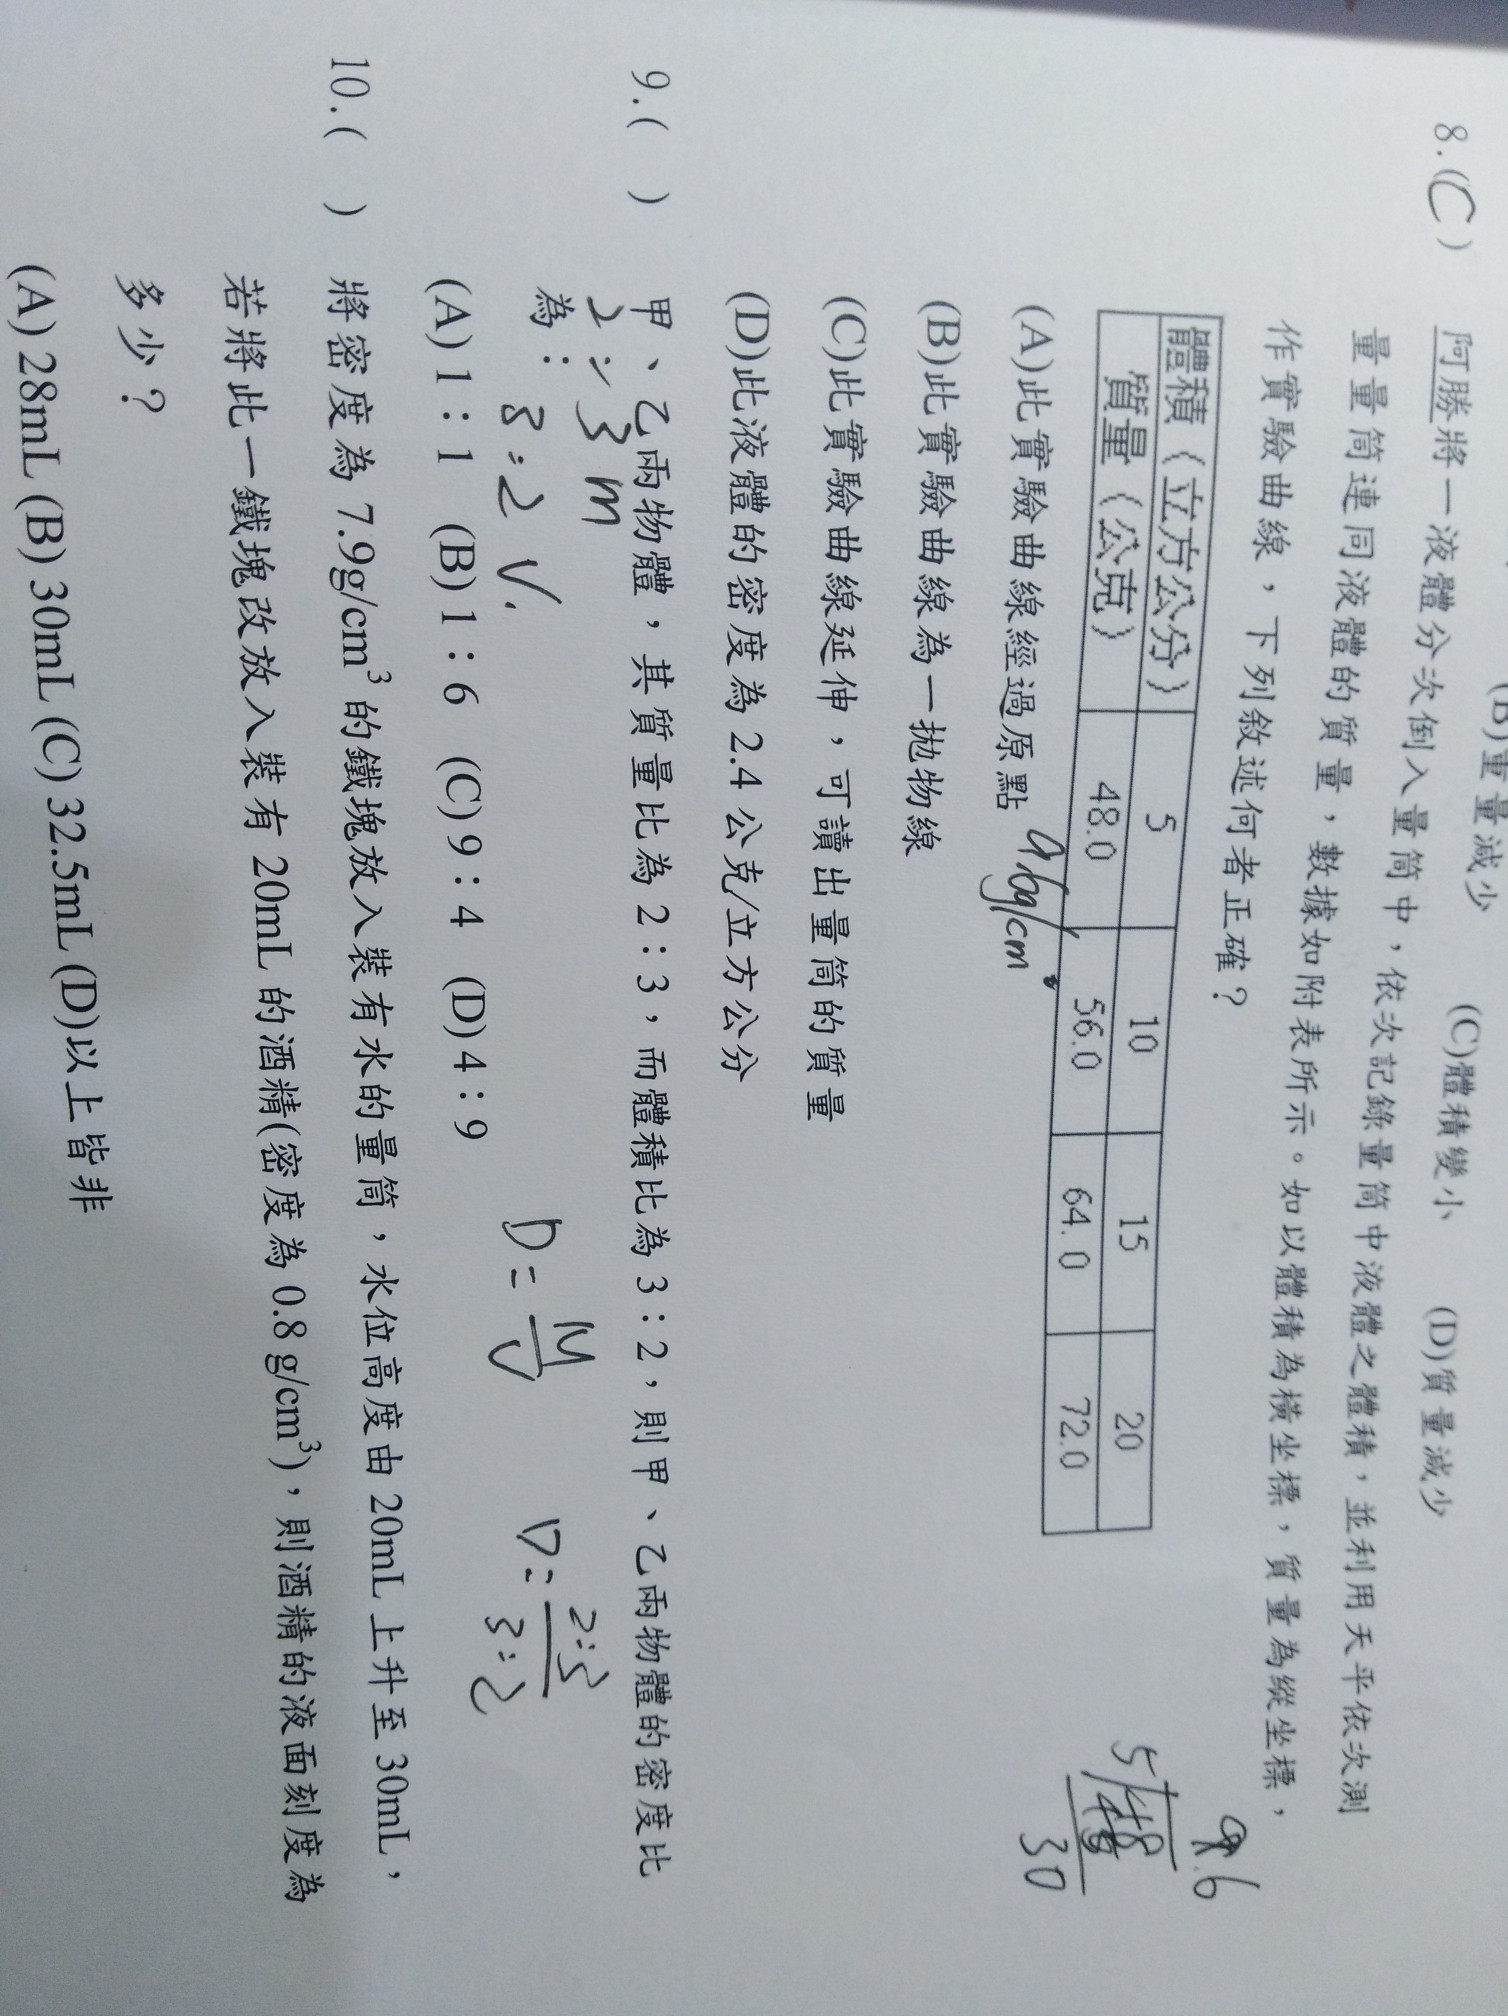 (B)重量減少 (C)體積變小 (D)質量減少
8.(C) 阿勝將一液體分次倒入量筒中，依次記錄量筒中液體之體積，並利用天平依次測
量量筒連同液體的質量，數據如附表所示。如以體積為橫坐標，質量為縱坐標，
作實驗曲線，下列敘述何者正確？
體積（立方公分） 5 10 15 20
質量（公克） 48.0 56.0 64.0 72.0
9.6
5 48
30
(A)此實驗曲線經過原點 9.6g/cm
(B)此實驗曲線為一拋物線
(C)此實驗曲線延伸，可讀出量筒的質量
(D)此液體的密度為 2.4 公克/立方公分
9.( ) 甲、乙兩物體，其質量比為 2：3，而體積比為 3：2，則甲、乙兩物體的密度比
為：
2:3 m
3:2 V.
D=M/V
D=2:3/3:2
(A) 1：1 (B) 1：6 (C) 9：4 (D) 4：9
10.( ) 將密度為 7.9g/cm³ 的鐵塊放入裝有水的量筒，水位高度由 20mL 上升至 30mL，
若將此一鐵塊改放入裝有 20mL 的酒精(密度為 0.8 g/cm³)，則酒精的液面刻度為
多少？
(A) 28mL (B) 30mL (C) 32.5mL (D)以上皆非